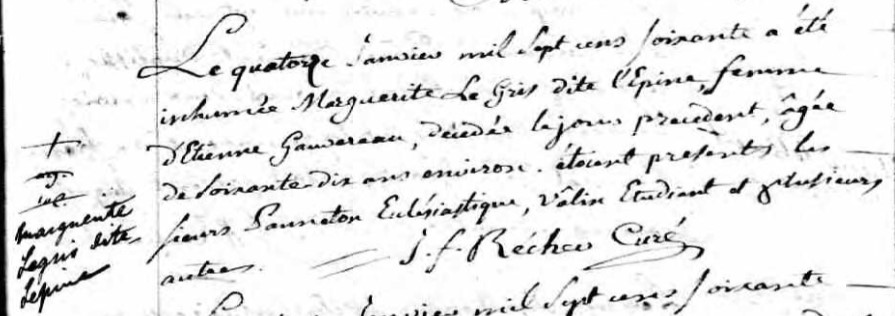 Le quatorze Janvier mil Sept cens soixante a été
inhumée Marguerite Le Gris dite l'Epine, femme
d'Etienne Gauvereau, décedée le jour precedent, âgée
de Soixante-dix ans environ. étoient présents les
sieurs Panneton Eclésiastique, Vâlin Etudiant et plusieurs
autres. J. f. Récher Curé
+
marguerite
Legris dite
Lepine
Janvier mil Sept cens soixante